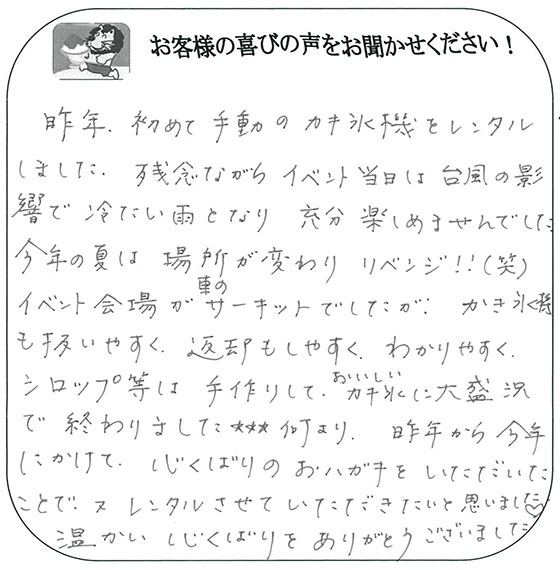 お客様の喜びの声をお聞かせください！
昨年、初めて手動のカキ氷機をレンタル
しました。残念ながらイベント当日は台風の影
響で冷たい雨となり充分楽しめませんでした
今年の夏は場所が変わりリベンジ!!(笑)
イベント会場が車のサーキットでしたが、かき氷機
も扱いやすく、返却もしやすく、わかりやすく、
シロップ等は手作りして、おいしいカキ氷に大盛況
で終わりました***何より、昨年から今年
にかけて、心くばりのおハガキをいただいた
ことで、又レンタルさせていただきたいと思いました♡
温かい心くばりをありがとうございました